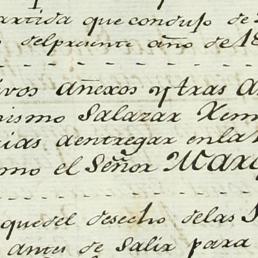 artida que condujo de
del presente año de 18
ivos añexos y tras a
nismo Salazar Xem
cias a entregar en la
omo el Señor Marq
que del desecho de las
antes de Salir para